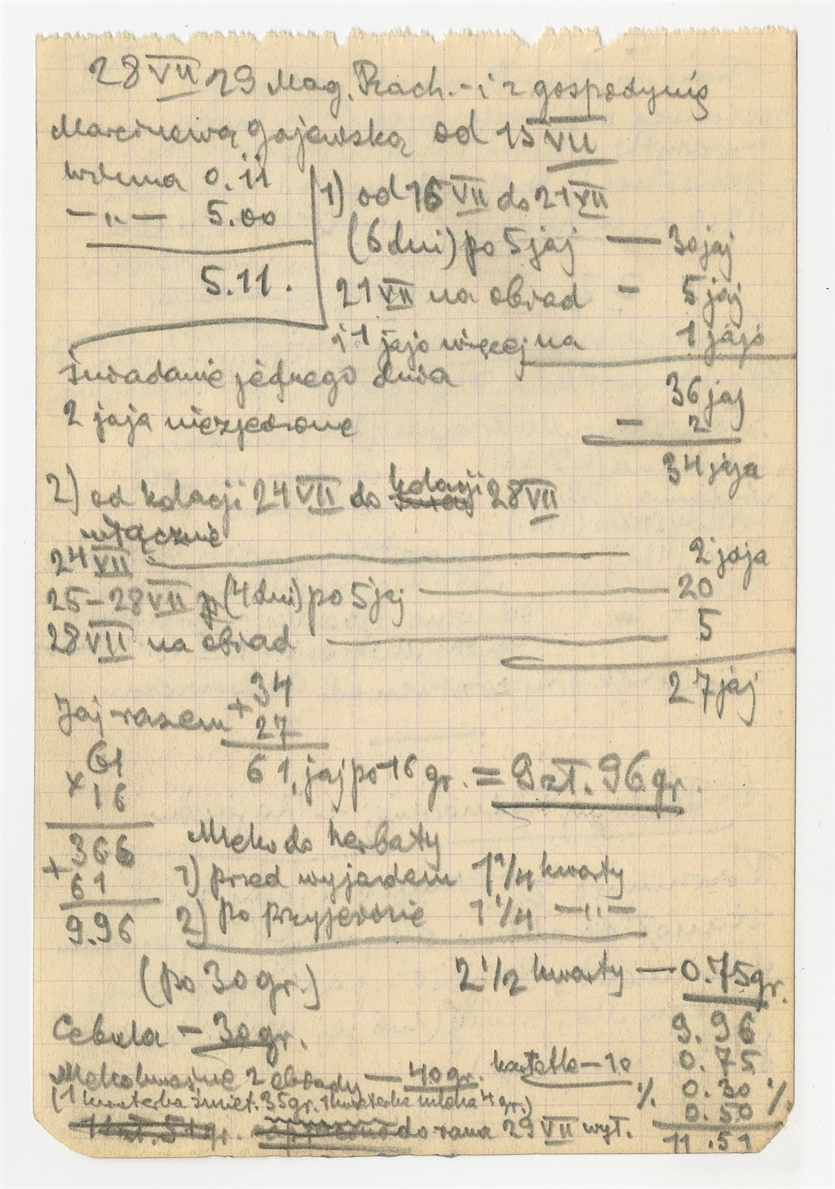 28 VII 29 Mag. Rach. - i z gospodynią
Marcinową Gajewską od 15 VII
0.11
— „ — 5.00
5.11.
1) od 16 VII do 21 VII
(6 dni) po 5 jaj — 30 jaj
21 VII na obiad - 5 jaj
i 1 jajo więcej na 1 jajo
śniadanie jednego dnia
36 jaj
2 jaja niezjedzone - 2
34 jaja
2) od kolacji 24 VII do kolacji 28 VII
włącznie
24 VII — 2 jaja
25-28 VII (4 dni) po 5 jaj — 20
28 VII na obiad — 5
27 jaj
Jaj razem + 34
27
61 jaj po 16 gr. = 9 zł. 96 gr.
61
x 16
366
+ 61
9.96
Mleko do herbaty
1) przed wyjazdem 1 1/4 kwarty
2) po przyjeździe 1 1/4 — „ —
(po 30 gr.) 2 1/2 kwarty — 0.75 gr.
Cebula - 30 gr.
9.96
0.75
0.30
0.50
11.51
Mleko kwaśne 2 obiady — 40 gr. - 10
(1 kwaterka śmiet. 35 gr. 1 kwaterka mleka 4 gr.)
11 zł. 51 gr. do rana 29 VII wył.